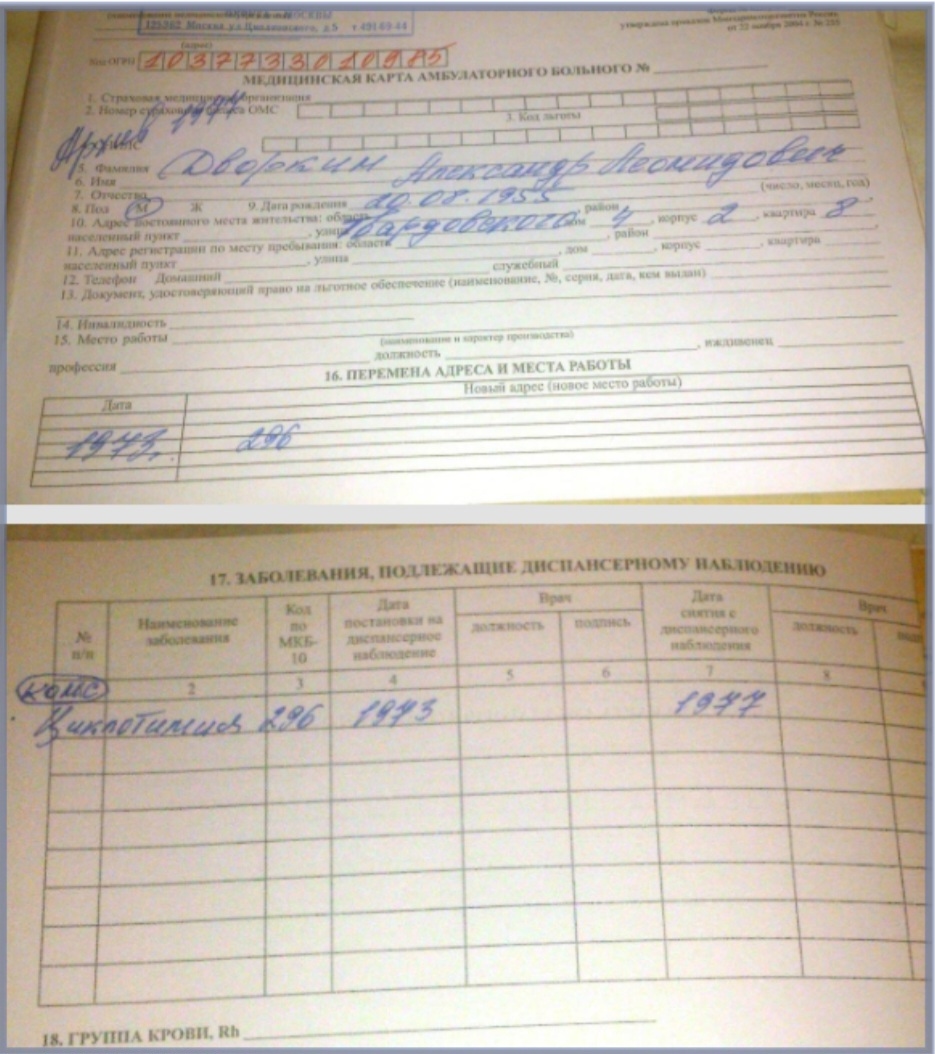 125362 Москва ул.Циолковского, д.5 т 491 69 44
утверждена приказом Минздравсоцразвития России
от 22 ноября 2004 г. № 255
(адрес)
Код ОГРН 1037733010985
МЕДИЦИНСКАЯ КАРТА АМБУЛАТОРНОГО БОЛЬНОГО №
1. Страховая медицинская организация
2. Номер страхового полиса ОМС
3. Код льготы
Архив 1977
5. Фамилия Дворкин Александр Леонидович
6. Имя
7. Отчество
(число, месяц, год)
8. Пол М Ж 9. Дата рождения 20.08.1955
10. Адрес постоянного места жительства: область район
населенный пункт , улица Твардовского дом 4 , корпус 2 , квартира 8
11. Адрес регистрации по месту пребывания: область , район
населенный пункт , улица , дом , корпус , квартира
12. Телефон Домашний служебный
13. Документ, удостоверяющий право на льготное обеспечение (наименование, №, серия, дата, кем выдан)
14. Инвалидность
15. Место работы
(наименование и характер производства)
профессия должность , иждивенец
16. ПЕРЕМЕНА АДРЕСА И МЕСТА РАБОТЫ
Дата Новый адрес (новое место работы)
1973. 296
17. ЗАБОЛЕВАНИЯ, ПОДЛЕЖАЩИЕ ДИСПАНСЕРНОМУ НАБЛЮДЕНИЮ
№ п/п
Наименование заболевания
Код по МКБ-10
Дата постановки на диспансерное наблюдение
Врач
должность подпись
Дата снятия с диспансерного наблюдения
Врач
должность
2 3 4 5 6 7 8
Циклотимия 296 1973 1977
18. ГРУППА КРОВИ, Rh